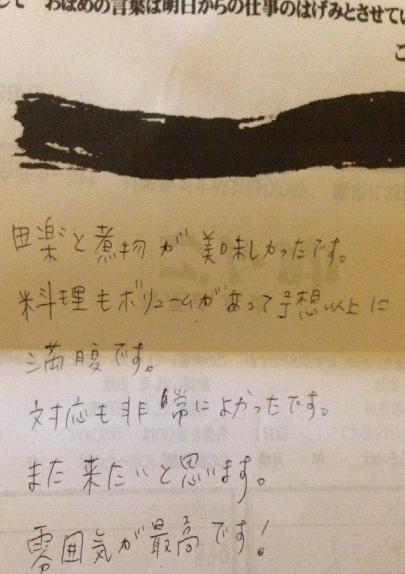 して　おほめの言葉は明日からの仕事のはげみとさせてい
こ
田楽と煮物が美味しかったです。
料理もボリュームがあって予想以上に
満腹です。
対応も非常によかったです。
また来たいと思います。
雰囲気が最高です！